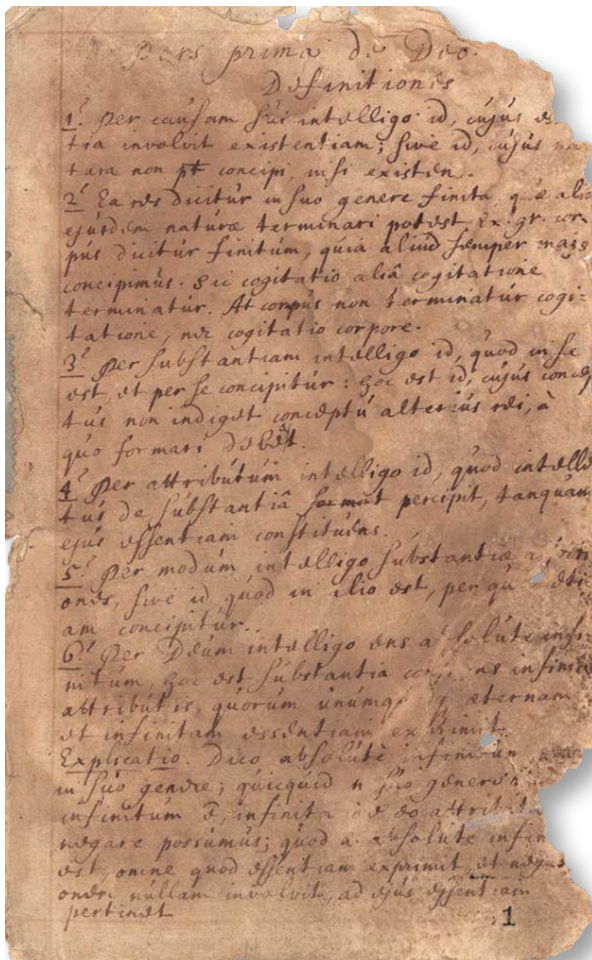 Pars prima de Deo.
Definitiones
1. Per causam sui intelligo id, cujus es
tia involvit existentiam; sive id, cujus na
tura non pt concipi, nisi existen.
2. Ea res dicitur in suo genere finita, quæ alia
ejusdem naturæ terminari potest Ex. gr. cor-
pus dicitur finitum, quia aliud semper majus
concipimus. Sic cogitatio aliâ cogitatione
terminatur. At corpus non terminatur cogi-
tatione, nec cogitatio corpore.
3. Per substantiam intelligo id, quod in se
est, et per se concipitur: hoc est id, cujus concep
tus non indiget conceptu alterius rei, à
quo formari debet.
4. Per attributum intelligo id, quod intelle
tus de substantiâ percipit, tanquam
ejus essentiam constituens.
5. Per modum intelligo substantiæ
ones, sive id quod in alio est, per qu eti
am concipitur.
6. Per Deum intelligo ens a solute infi-
nitum, hoc est substantia ns infinitis
attributis, quorum unumq æternam
et infinitam essentiam ex rimit.
Explicatio. Dico absolutè infinitum
in suo genere; quicquid n suo genere
infinitum ē, infinita de eo attributa
negare possumus; quod a absolute infin
est, omne quod essentiam exprimit, et nega
onem nullam involvit, ad ejus essentiam
pertinet
1